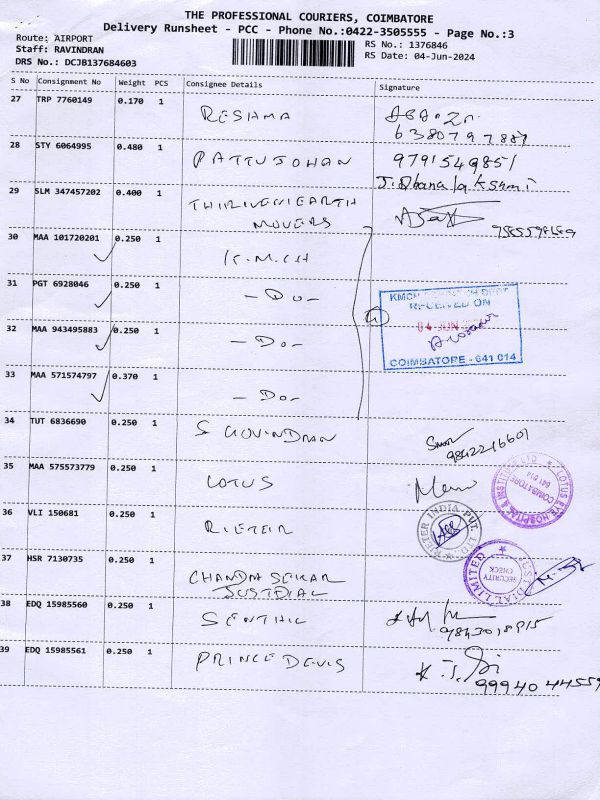 THE PROFESSIONAL COURIERS, COIMBATORE
Delivery Runsheet - PCC - Phone No.:0422-3505555 - Page No.:3
Route: AIRPORT
Staff: RAVINDRAN
DRS No.: DCJB137684603
RS No.: 1376846
RS Date: 04-Jun-2024
S No Consignment No Weight PCS Consignee Details Signature
27 TRP 7760149 0.170 1 RESHMA
28 STY 6064995 0.480 1 PATTUJOHAN 9791549851
J. Dhanalakshmi
29 SLM 347457202 0.400 1 THIRIVENIEARTH
MOVERS
30 MAA 101720201 0.250 1 K.M.C.H
31 PGT 6928046 0.250 1 - Do -
32 MAA 943495883 0.250 1 - Do -
33 MAA 571574797 0.370 1 - Do -
4
KMCH
RECEIVED ON
04 JUN
COIMBATORE - 641 014
34 TUT 6836690 0.250 1 S GOVINDRAN
9842216601
35 MAA 575573779 0.250 1 LOTUS
LOTUS EYE HOSPITAL & INSTITUTE LTD
COIMBATORE
641 014
36 VLI 150681 0.250 1 RIETER
RIETER INDIA PVT. LTD.
37 HSR 7130735 0.250 1 CHANDRASEKAR
JUSTDIAL
JUST DIAL LIMITED
SECURITY
CHECK
38 EDQ 15985560 0.250 1 SENTHIL
9843018915
39 EDQ 15985561 0.250 1 PRINCE DEVIS
9994044559